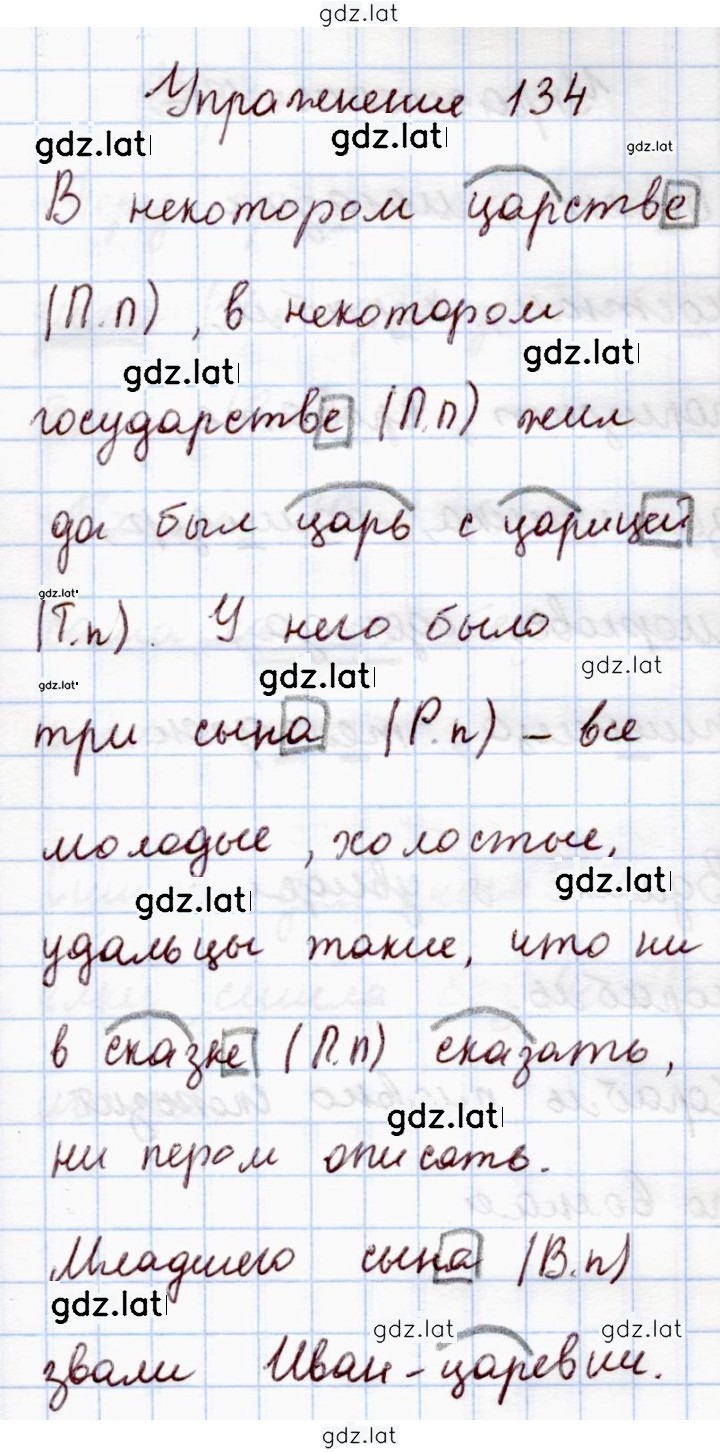 gdz.lat
Упражнение 134
gdz.lat gdz.lat gdz.lat
В некотором царстве
(П.п), в некотором
gdz.lat gdz.lat
государстве (П.п) жил
да был царь с царицей
gdz.lat
(Т.п). У него было
gdz.lat gdz.lat gdz.lat
три сына (Р.п) – все
молодые, холостые,
gdz.lat gdz.lat
удальцы такие, что ни
в сказке (П.п) сказать,
gdz.lat
ни пером описать.
Младшего сына (В.п)
gdz.lat gdz.lat gdz.lat
звали Иван-царевич.
gdz.lat